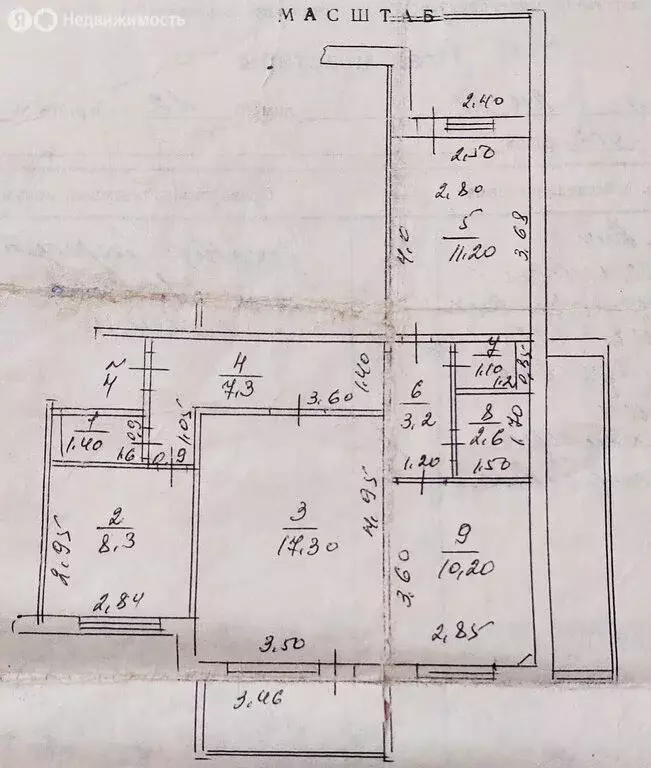 Я Недвижимость
МАСШТАБ
2.40
2.50
2.80
5
11.20
4.0
3.68
4
7.3
3.60
1.40
N
4
7
1.10
1.2
0.85
6
3.2
1.20
8
2.6
1.70
1.50
1
1.40
0.9
1.6
1.05
0.9
2
8.3
2.95
2.84
3
17.30
4.95
3.50
9
10.20
3.60
2.85
3.46